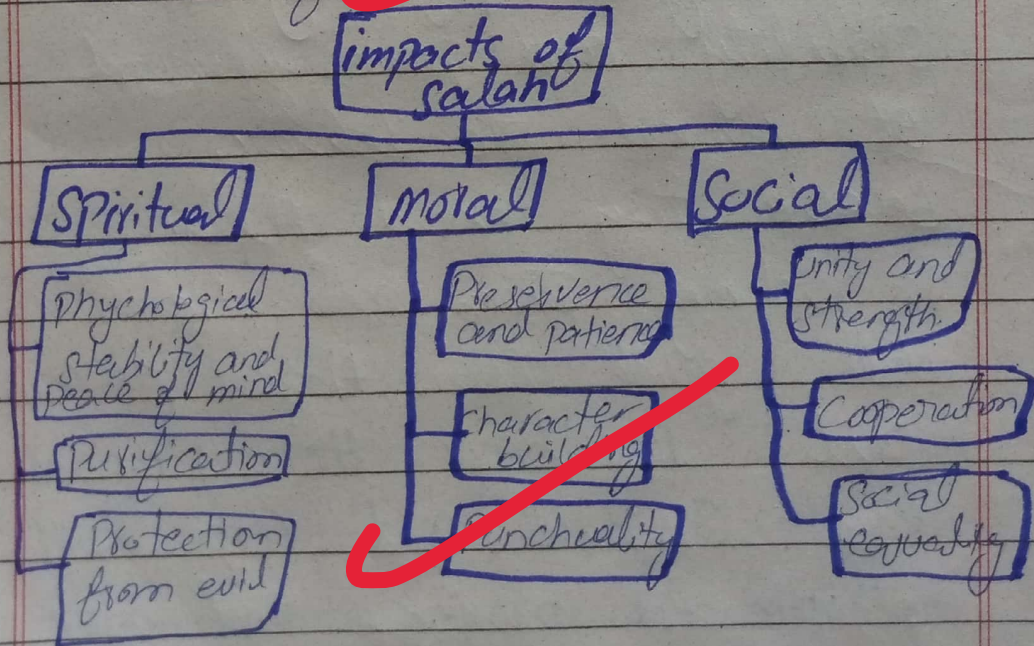 impacts of
salah
Spiritual
Moral
Social
Phychological
stability and
Peace of mind
Purification
Protection
from evil
Preservence
and patience
Character
building
Punctuality
Unity and
strength.
Cooperation
Social
equality